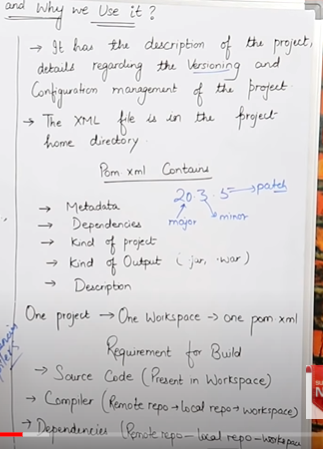 and Why we Use it?
→ It has the description of the project,
details regarding the Versioning and
Configuration management of the project
→ The XML file is in the project
home directory.
Pom xml Contains
20.3.5 → patch
→ Metadata
major
minor
→ Dependencies
→ Kind of project
→ Kind of Output (.jar, .war)
→ Description
One project → One Workspace → one pom xml
Requirement for Build
→ Source Code (Present in Workspace)
→ Compiler (Remote repo → local repo → workspace)
→ Dependencies (Remote repo – local repo – workspace